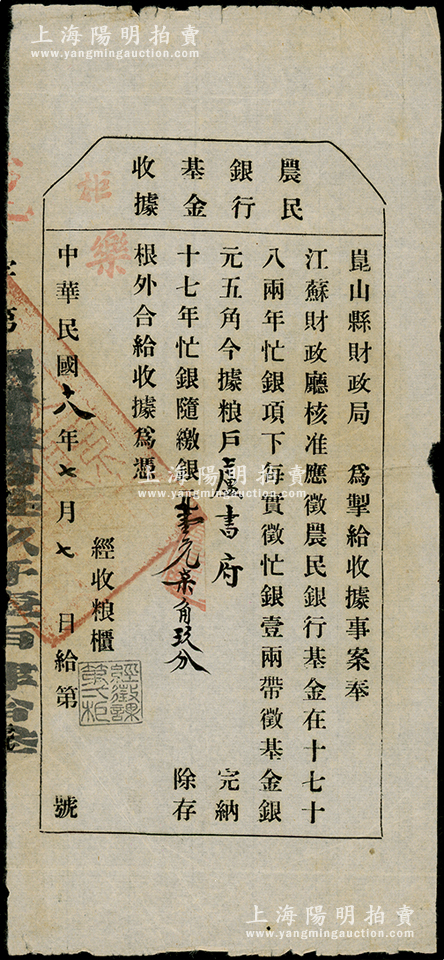 上海陽明拍賣
www.yangmingauction.com
農民
銀行
基金
收據
崑山縣財政局　為掣給收據事案奉
江蘇財政廳核准應徵農民銀行基金在十七十
八兩年忙銀項下每實徵忙銀壹兩帶徵基金銀
元五角今據粮戶　書府　完納
十七年忙銀隨繳銀　元　角玖分　除存
根外合給收據為憑
經收粮櫃
經徵課
第　柜
中華民國十八年七月七日給第　號
柜
樂
上海陽明拍賣
www.yangmingauction.com
上海陽明拍賣
www.yangmingauction.com